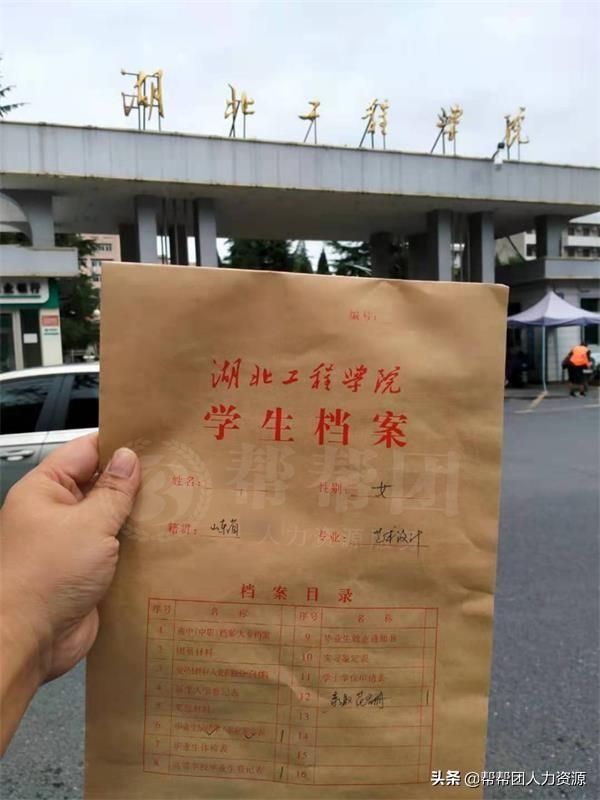 湖北工程学院
编号：
湖北工程学院
学生档案
帮帮团
人力资源
姓名：
性别：女
籍贯：山东省
专业：艺术设计
档案目录
序号 名称 序号 名称
1 高中(中职)档案大专档案 9 毕业生就业通知书
2 团员材料 10 实习鉴定表
3 11 学士学位申请表
4 新生入学登记表 12
5 奖惩材料 13
6 14
7 毕业生体检表 15
8 高等学校毕业生登记表 1 16
头条 @帮帮团人力资源